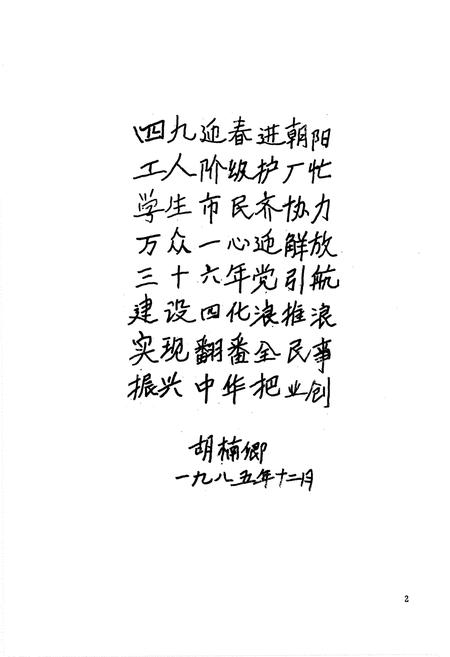 四九迎春进朝阳
工人阶级护厂忙
学生市民齐协力
万众一心迎解放
三十六年党引航
建设四化浪推浪
实现翻番全民事
振兴中华把业创
胡楠卿
一九八五年十二月
2